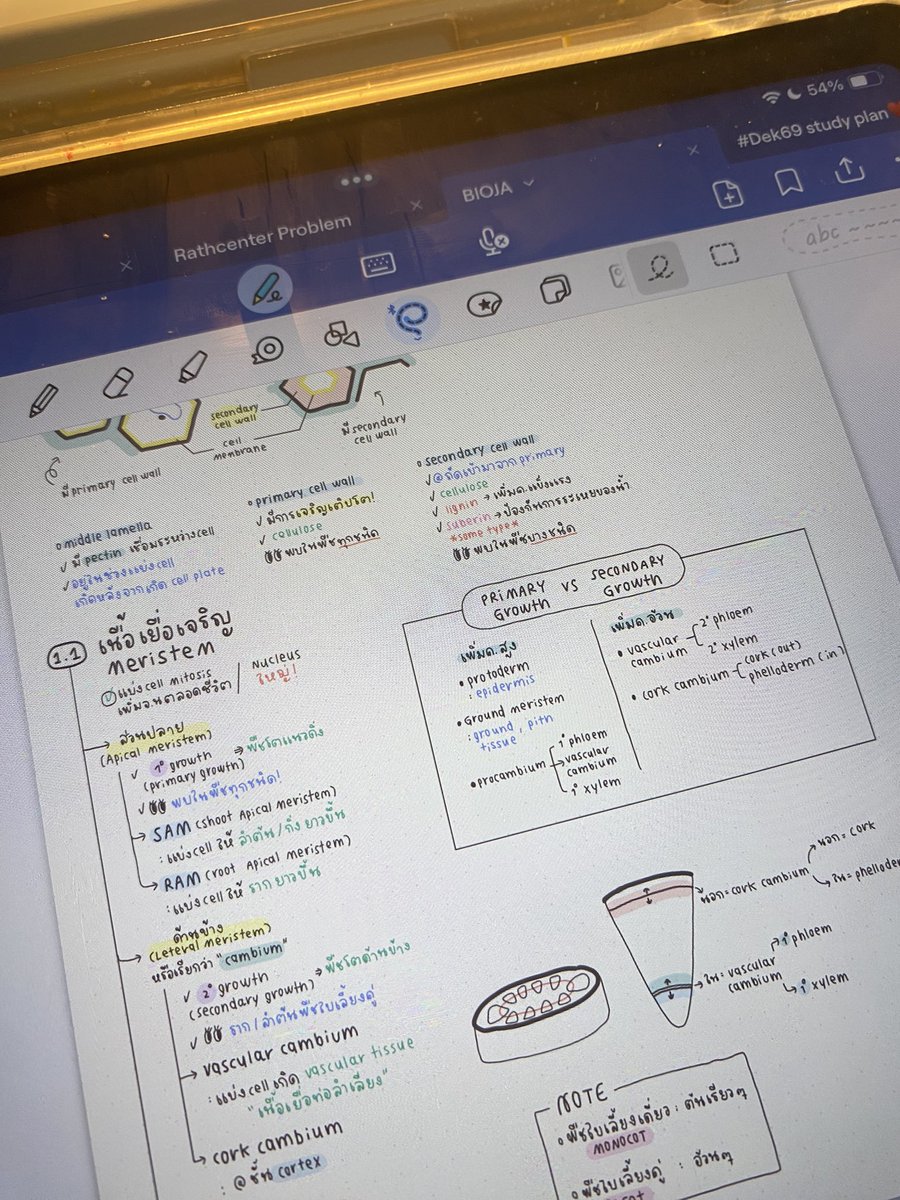 54%
#Dek69 study plan
Rathcenter Problem
BIOJA
abc
secondary
cell wall
cell
membrane
มี primary cell wall
มี secondary
cell wall
middle lamella
✓ มี pectin เชื่อมระหว่าง cell
✓ อยู่ในช่วงแบ่ง cell
เกิดหลังจากเกิด cell plate
primary cell wall
✓ มีการเจริญเติบโต!
✓ cellulose
พบในพืชทุกชนิด
secondary cell wall
✓ @ถัดเข้ามาจาก primary
✓ cellulose
✓ lignin → เพิ่มค.แข็งแรง
✓ suberin → ป้องกันการระเหยของน้ำ
*some type*
พบในพืชบางชนิด
1.1 เนื้อเยื่อเจริญ
meristem
แบ่ง cell mitosis
เพิ่มจ.นตลอดชีวิต
Nucleus
ใหญ่!
ส่วนปลาย
(Apical meristem)
✓ 1° growth → พืชโตแนวดิ่ง
(primary growth)
✓ พบในพืชทุกชนิด!
→ SAM (shoot Apical meristem)
: แบ่ง cell ให้ ลำต้น/กิ่ง ยาวขึ้น
→ RAM (root Apical meristem)
: แบ่ง cell ให้ ราก ยาวขึ้น
ด้านข้าง
(Leteral meristem)
หรือเรียกว่า "cambium"
✓ 2° growth
(secondary growth) → พืชโตด้านข้าง
✓ ราก/ลำต้นพืชใบเลี้ยงคู่
→ vascular cambium
: แบ่ง cell เกิด vascular tissue
"เนื้อเยื่อท่อลำเลียง"
→ cork cambium
: @ชั้น cortex
PRIMARY VS SECONDARY
Growth Growth
เพิ่มค.สูง
• protoderm
: epidermis
• Ground meristem
: ground, pith
tissue
• procambium
1° phloem
vascular
cambium
1° xylem
เพิ่มค.อ้วน
• vascular
cambium
2° phloem
2° xylem
• cork cambium
cork (out)
phelloderm (in)
นอก = cork cambium
นอก = cork
ใน = phellode
ใน = vascular
cambium
1° phloem
1° xylem
NOTE
พืชใบเลี้ยงเดี่ยว : ต้นเรียวๆ
MONOCOT
พืชใบเลี้ยงคู่ : อ้วนๆ